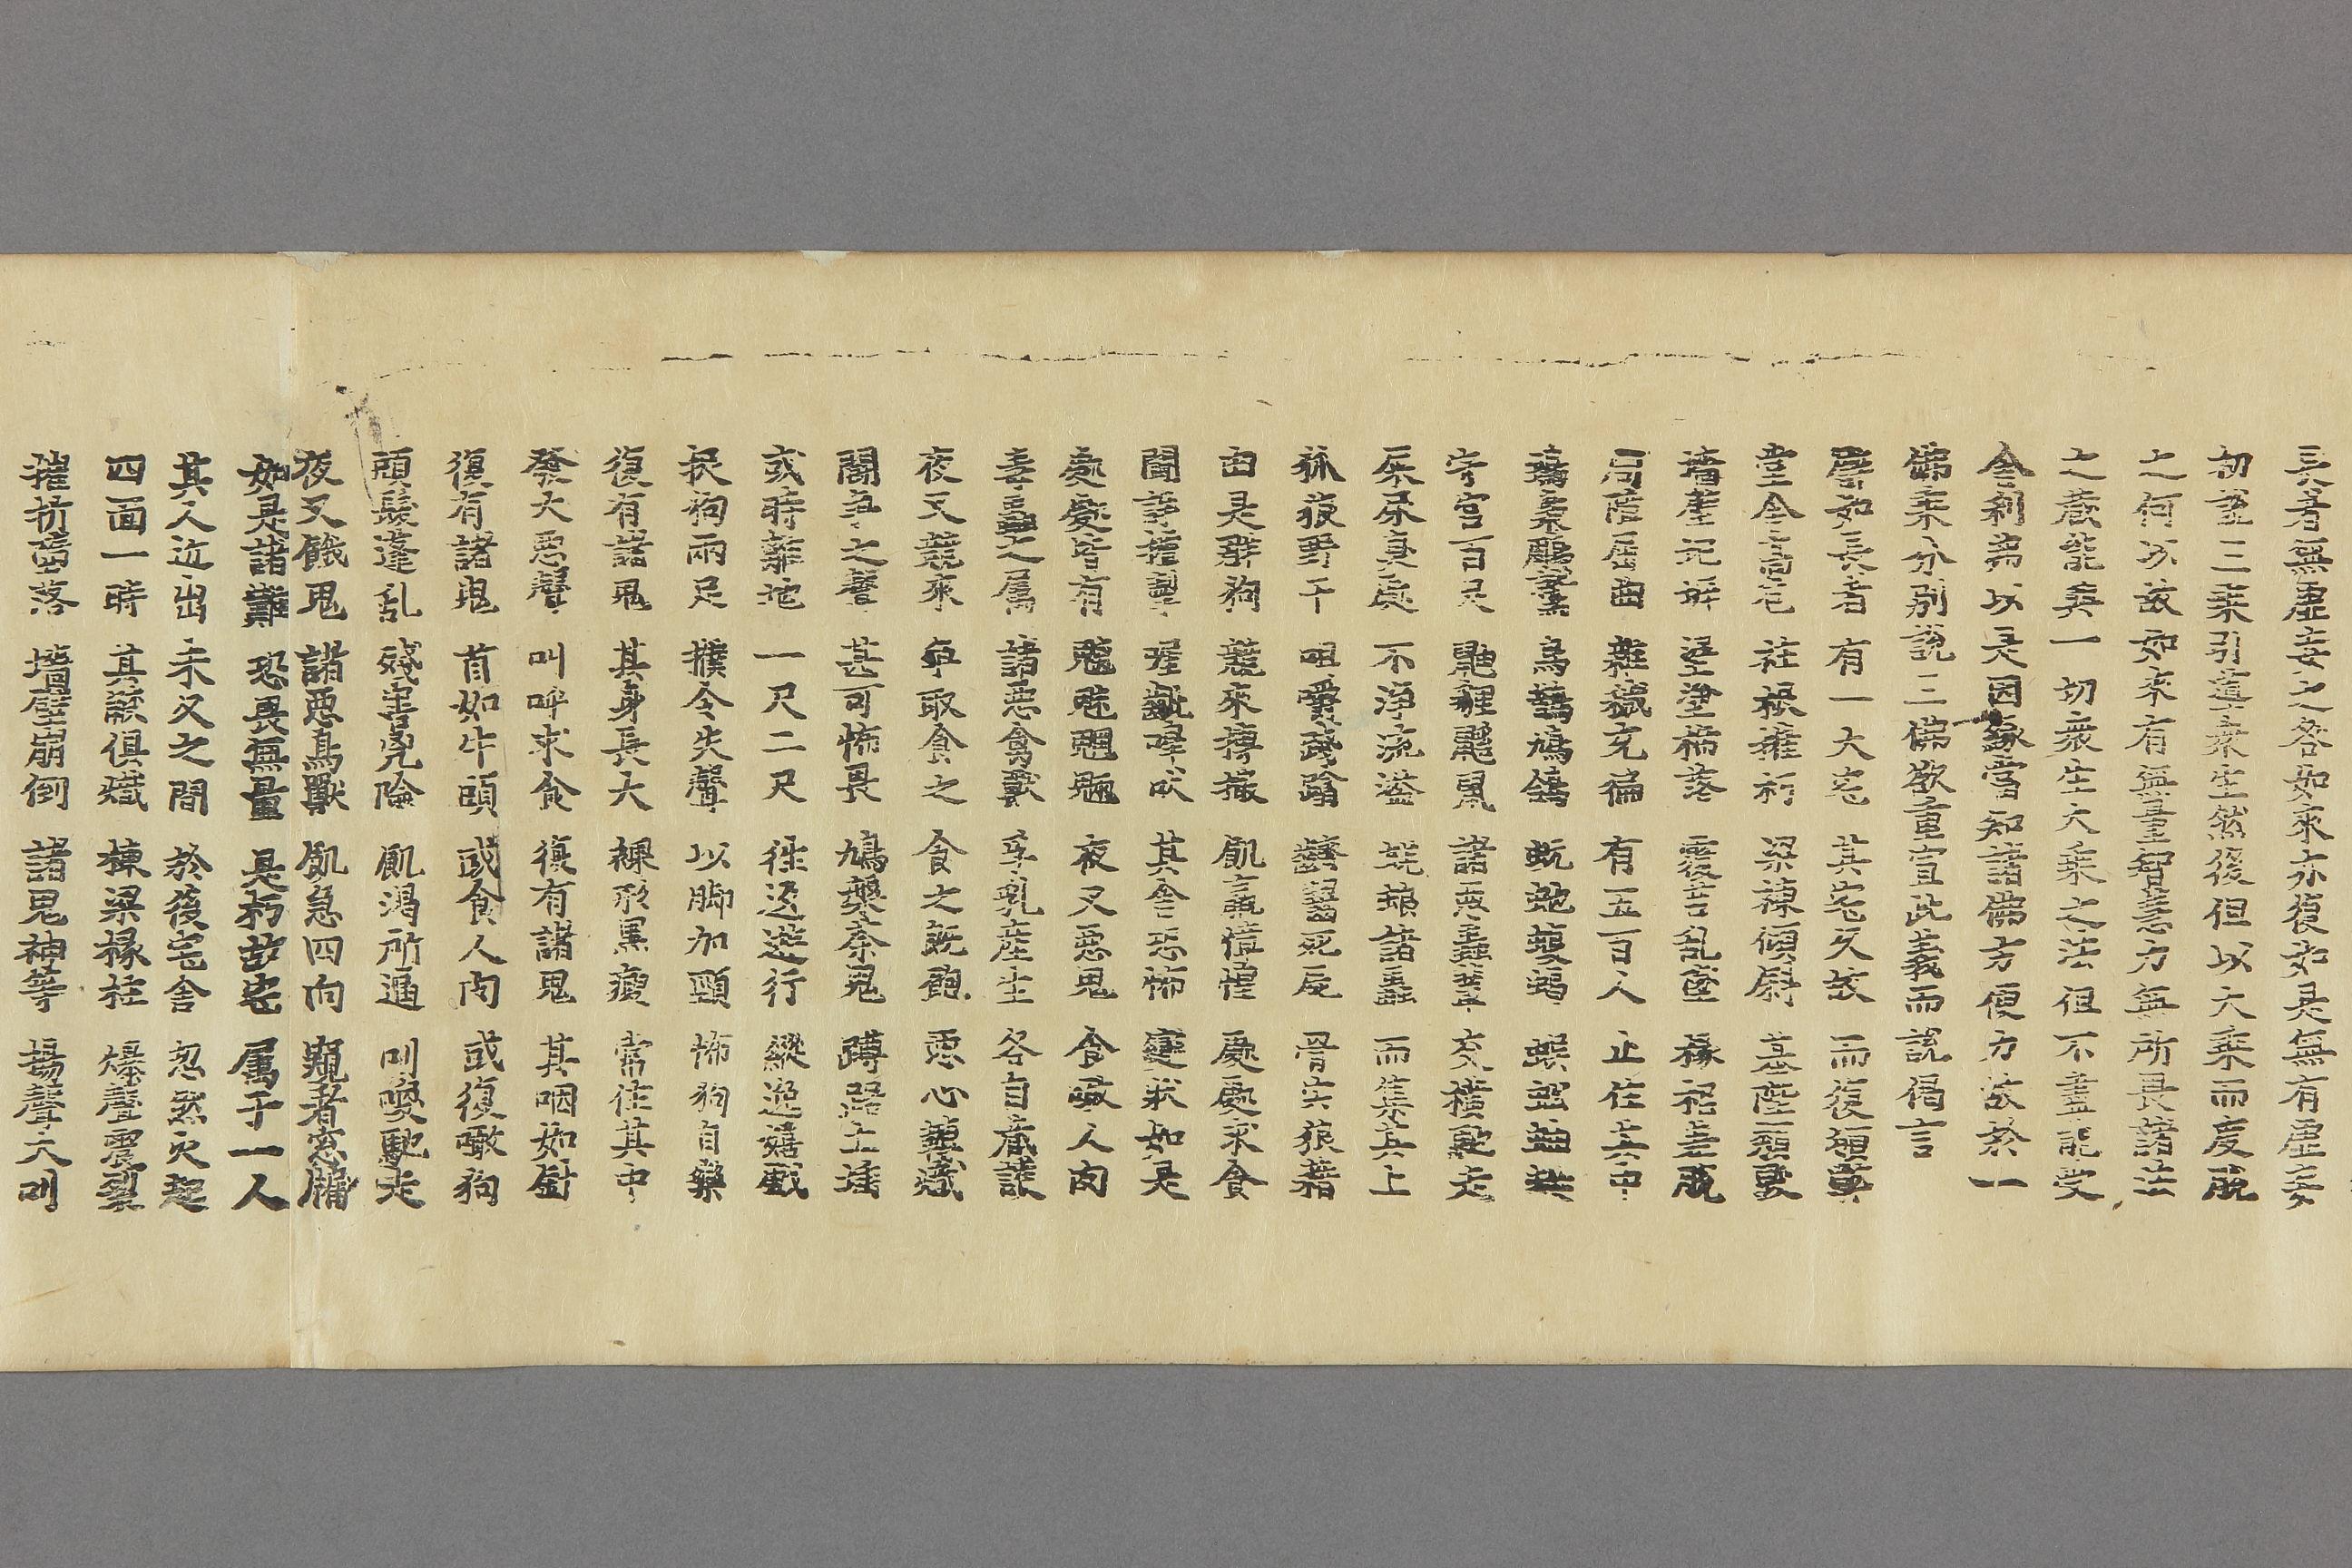 長者無虚妄之咎如來亦復如是無有虚妄
初說三乘引導衆生然後但以大乘而度脫
之何以故如來有無量智慧力無所畏諸法
之藏能與一切衆生大乘之法但不盡能受
舍利弗以是因緣當知諸佛方便力故於一
佛乘分別說三佛欲重宣此義而說偈言
譬如長者 有一大宅 其宅久故 而復頓弊
堂舎高危 柱根摧朽 梁棟傾斜 基陛頽毀
墻壁圮坼 泥塗褫落 覆苫乱墜 椽梠差脫
周障屈曲 雜穢充徧 有五百人 止住其中
鵄梟鵰鷲 烏鵲鳩鴿 蚖蛇蝮蝎 蜈蚣蚰蜒
守宮百足 鼬狸鼷鼠 諸惡蟲輩 交横馳走
屎尿臭處 不淨流溢 蜣蜋諸蟲 而集其上
狐狼野干 咀嚼踐蹋 齩齧死屍 骨肉狼藉
由是群狗 競來搏撮 飢羸慞惶 處處求食
闘諍摣掣 啀齜嘷吠 其舎恐怖 變狀如是
處處皆有 魑魅魍魎 夜叉惡鬼 食噉人肉
毒蟲之属 諸惡禽獸 孚乳産生 各自藏護
夜叉競來 爭取食之 食之既飽 惡心轉熾
闘爭之聲 甚可怖畏 鳩槃荼鬼 蹲踞土埵
或時離地 一尺二尺 往返遊行 縱逸嬉戯
捉狗兩足 撲令失聲 以脚加頸 怖狗自樂
復有諸鬼 其身長大 裸形黒瘦 常住其中
發大惡聲 叫呼求食 復有諸鬼 其咽如針
復有諸鬼 首如牛頭 或食人肉 或復噉狗
頭髮蓬乱 殘害兇險 飢渇所逼 叫喚馳走
夜叉餓鬼 諸惡鳥獸 飢急四向 窺看窓牖
如是諸難 恐畏無量 是朽故宅 属于一人
其人近出 未久之間 於後宅舎 忽然火起
四面一時 其燄俱熾 棟梁椽柱 爆聲震裂
摧折墮落 墻壁崩倒 諸鬼神等 揚聲大叫